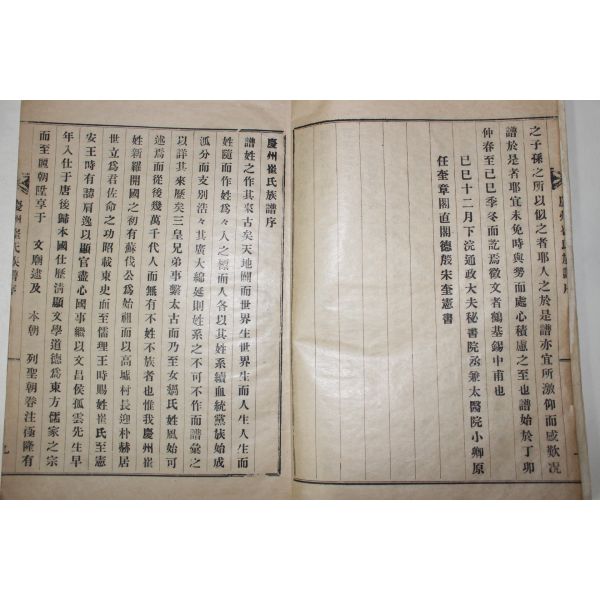 慶州崔氏族譜序
之子孫之所以似之者耶人之於是譜亦宜所激仰而感歎况
譜於是者耶宜未免時與勞而處心積慮之至也譜始於丁卯
仲春至己巳季冬而訖焉徵文者鶴基錫中甫也
己巳十二月下浣通政大夫秘書院丞兼太醫院小卿原
任奎章閣直閣德殷宋奎憲書
慶州崔氏族譜序
譜姓之作其來古矣天地闢而世界生世界生而人生人生而
姓隨而作姓爲々人之標而人各以其姓系續血統黨族始成
派分而支別浩々其廣大綿延則姓系之不可不作而譜彙之
以詳其來歷矣三皇兄弟事繫太古而乃至女媧氏姓風始可
述焉而從後幾萬千代人而無有不姓不族者也惟我慶州崔
姓新羅開國之初有蘇伐公爲始祖而以高墟村長迎朴赫居
世立爲君佐命之功昭載東史而至儒理王時賜姓崔氏至憲
安王時有諱肩逸以顯官盡心國事繼以文昌侯孤雲先生早
年入仕于唐後歸本國仕歷淸顯文學道德爲東方儒家之宗
而至麗朝陞享于 文廟述及 本朝 列聖朝眷注極隆有
慶州崔氏族譜序
九